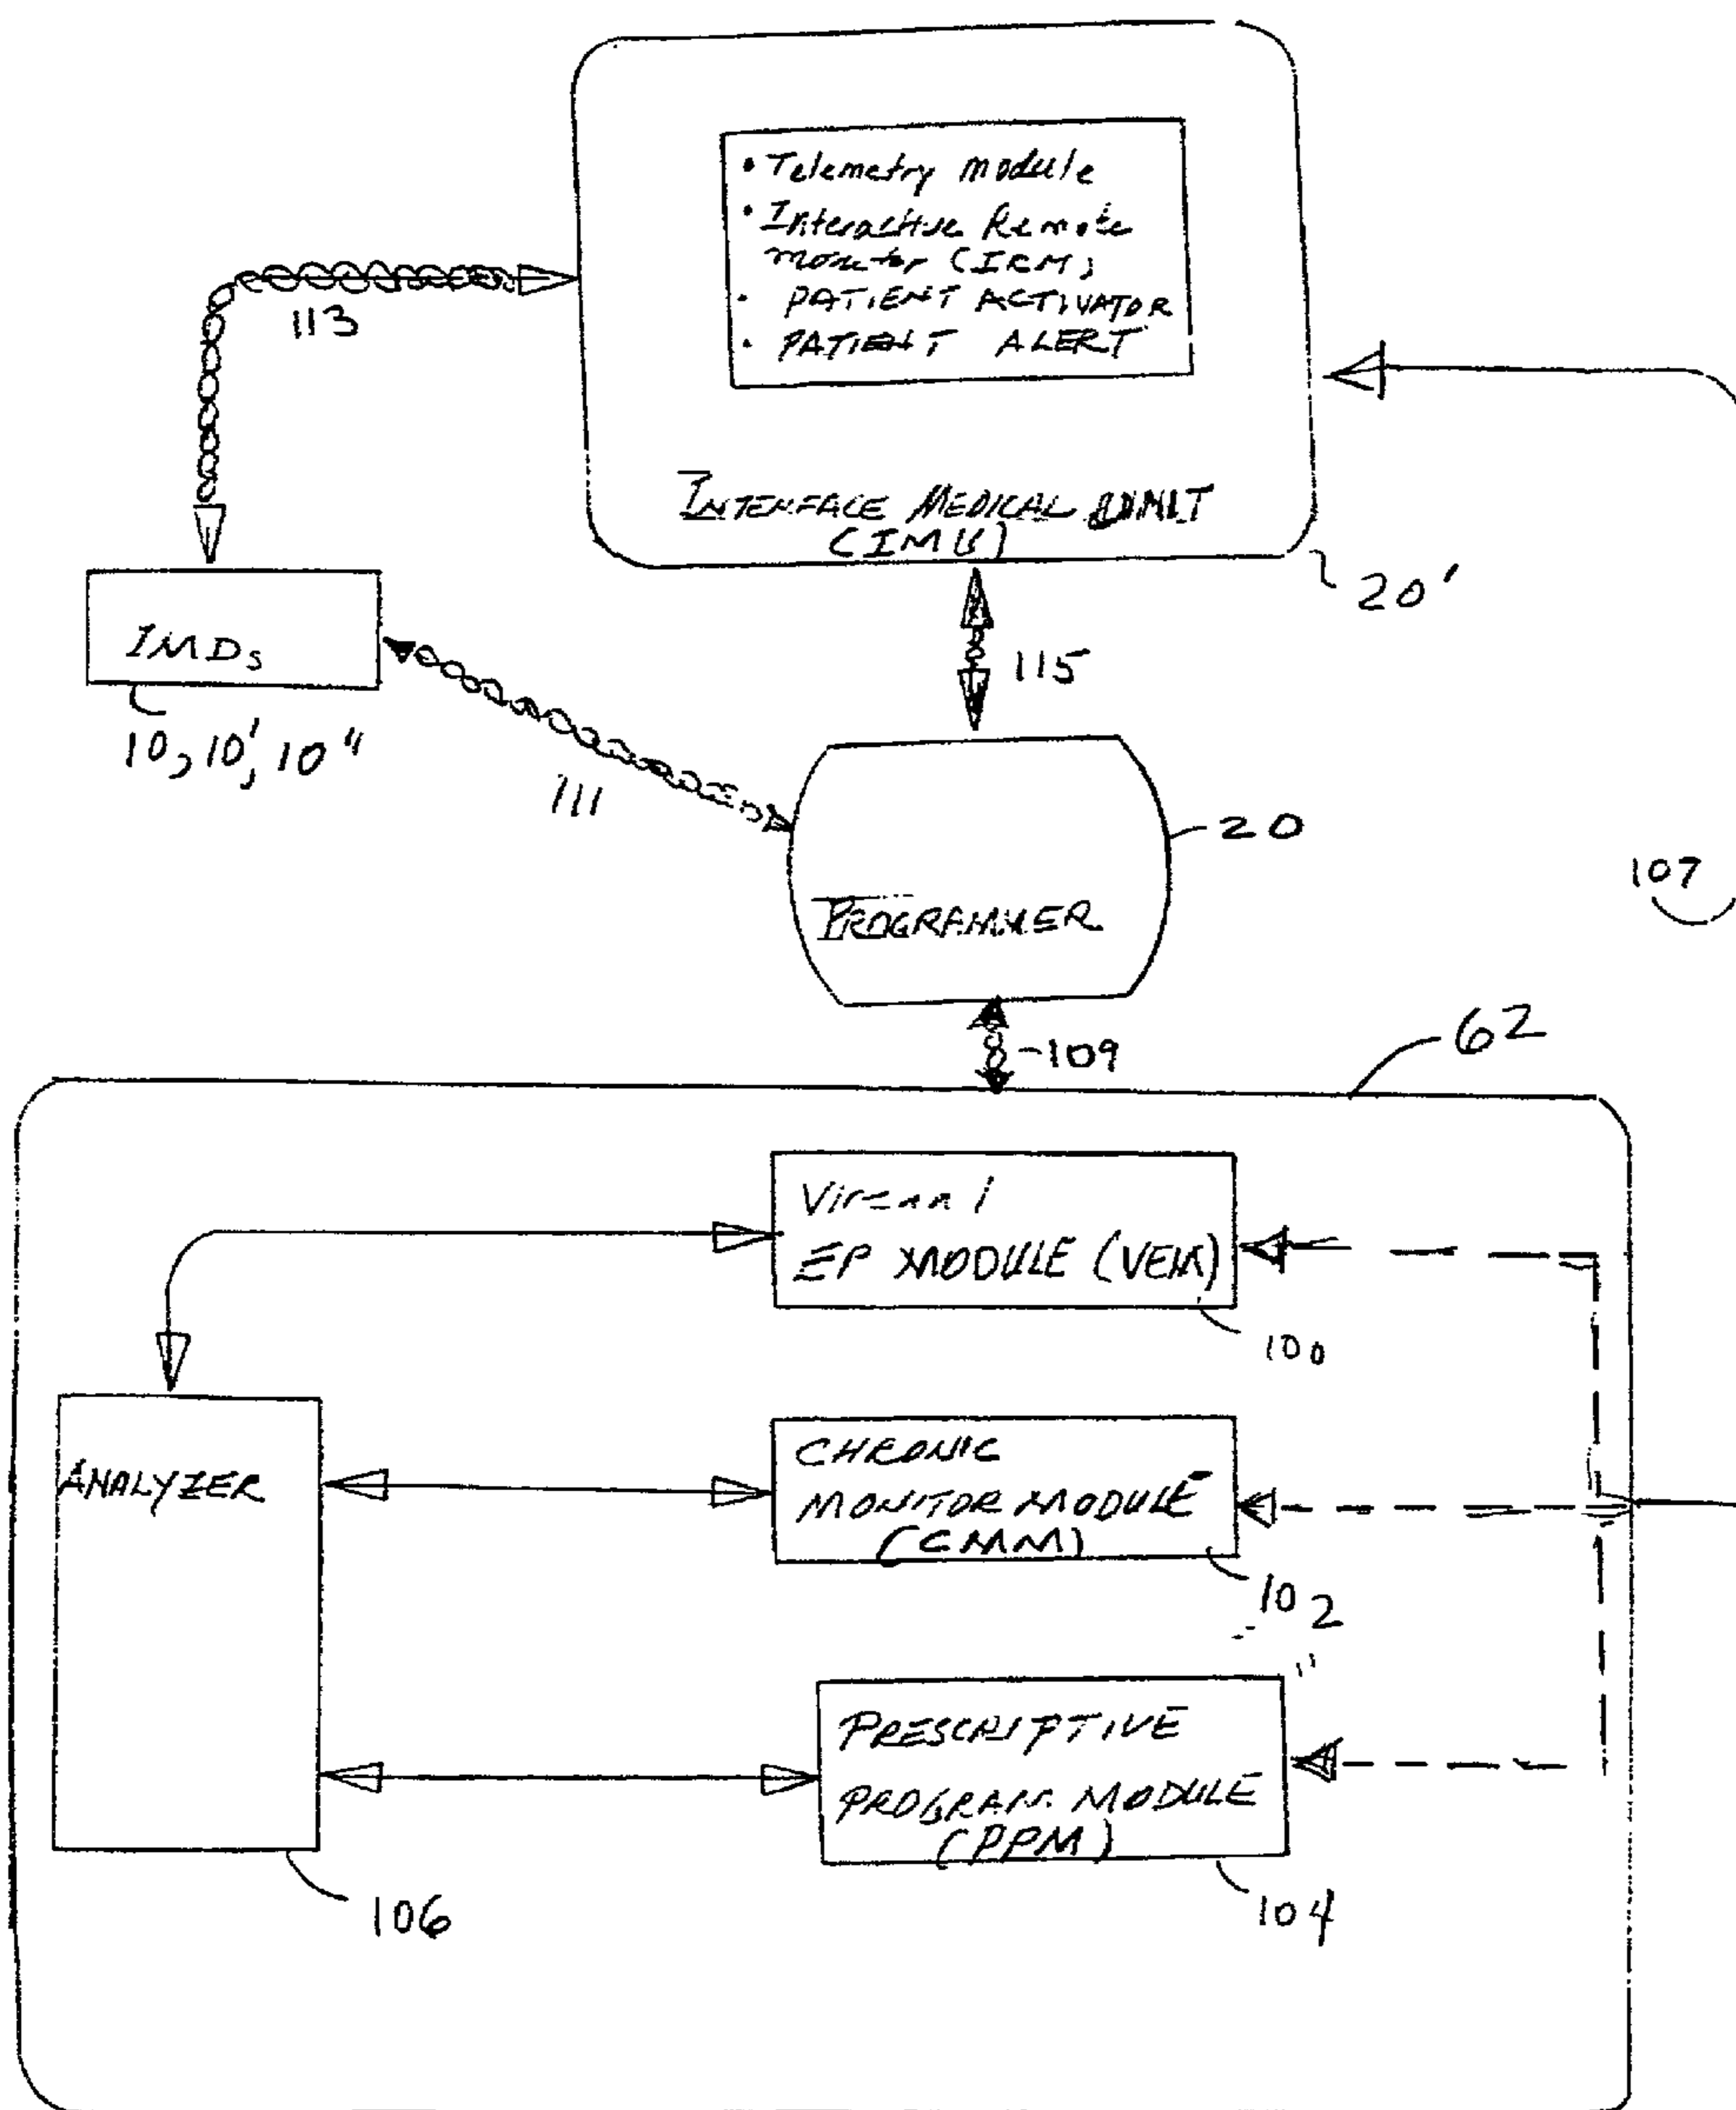 • Telemetry module
• Interactive Remote
monitor (IRM)
• PATIENT ACTIVATOR
• PATIENT ALERT
113
INTERFACE MEDICAL
(IMU)
20'
IMDs
115
10, 10', 10"
111
20
107
PROGRAMMER
109
62
EP MODULE (VEM)
100
CHRONIC
ANALYZER
MONITOR MODULE
(CMM)
102
PRESCRIPTIVE
PROGRAM MODULE
(PPM)
106
104